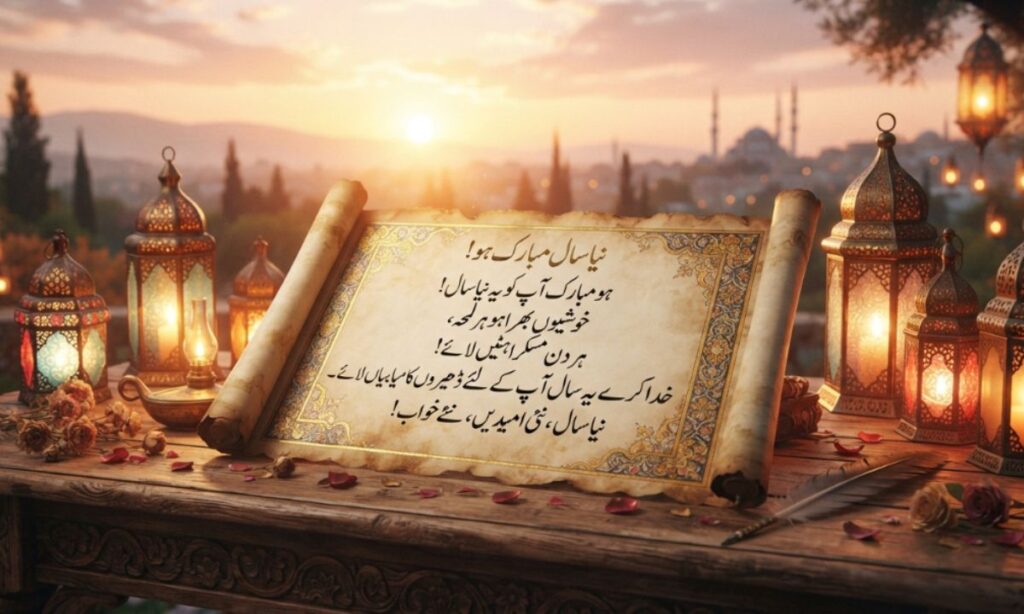 نیا سال مبارک ہو!
ہو مبارک آپ کو یہ نیا سال!
خوشیوں بھرا ہو ہر لمحہ،
ہر دن مسکراہٹیں لائے!
خدا کرے یہ سال آپ کے لئے ڈھیروں کامیابیاں لائے۔
نیا سال، نئی امیدیں، نئے خواب!